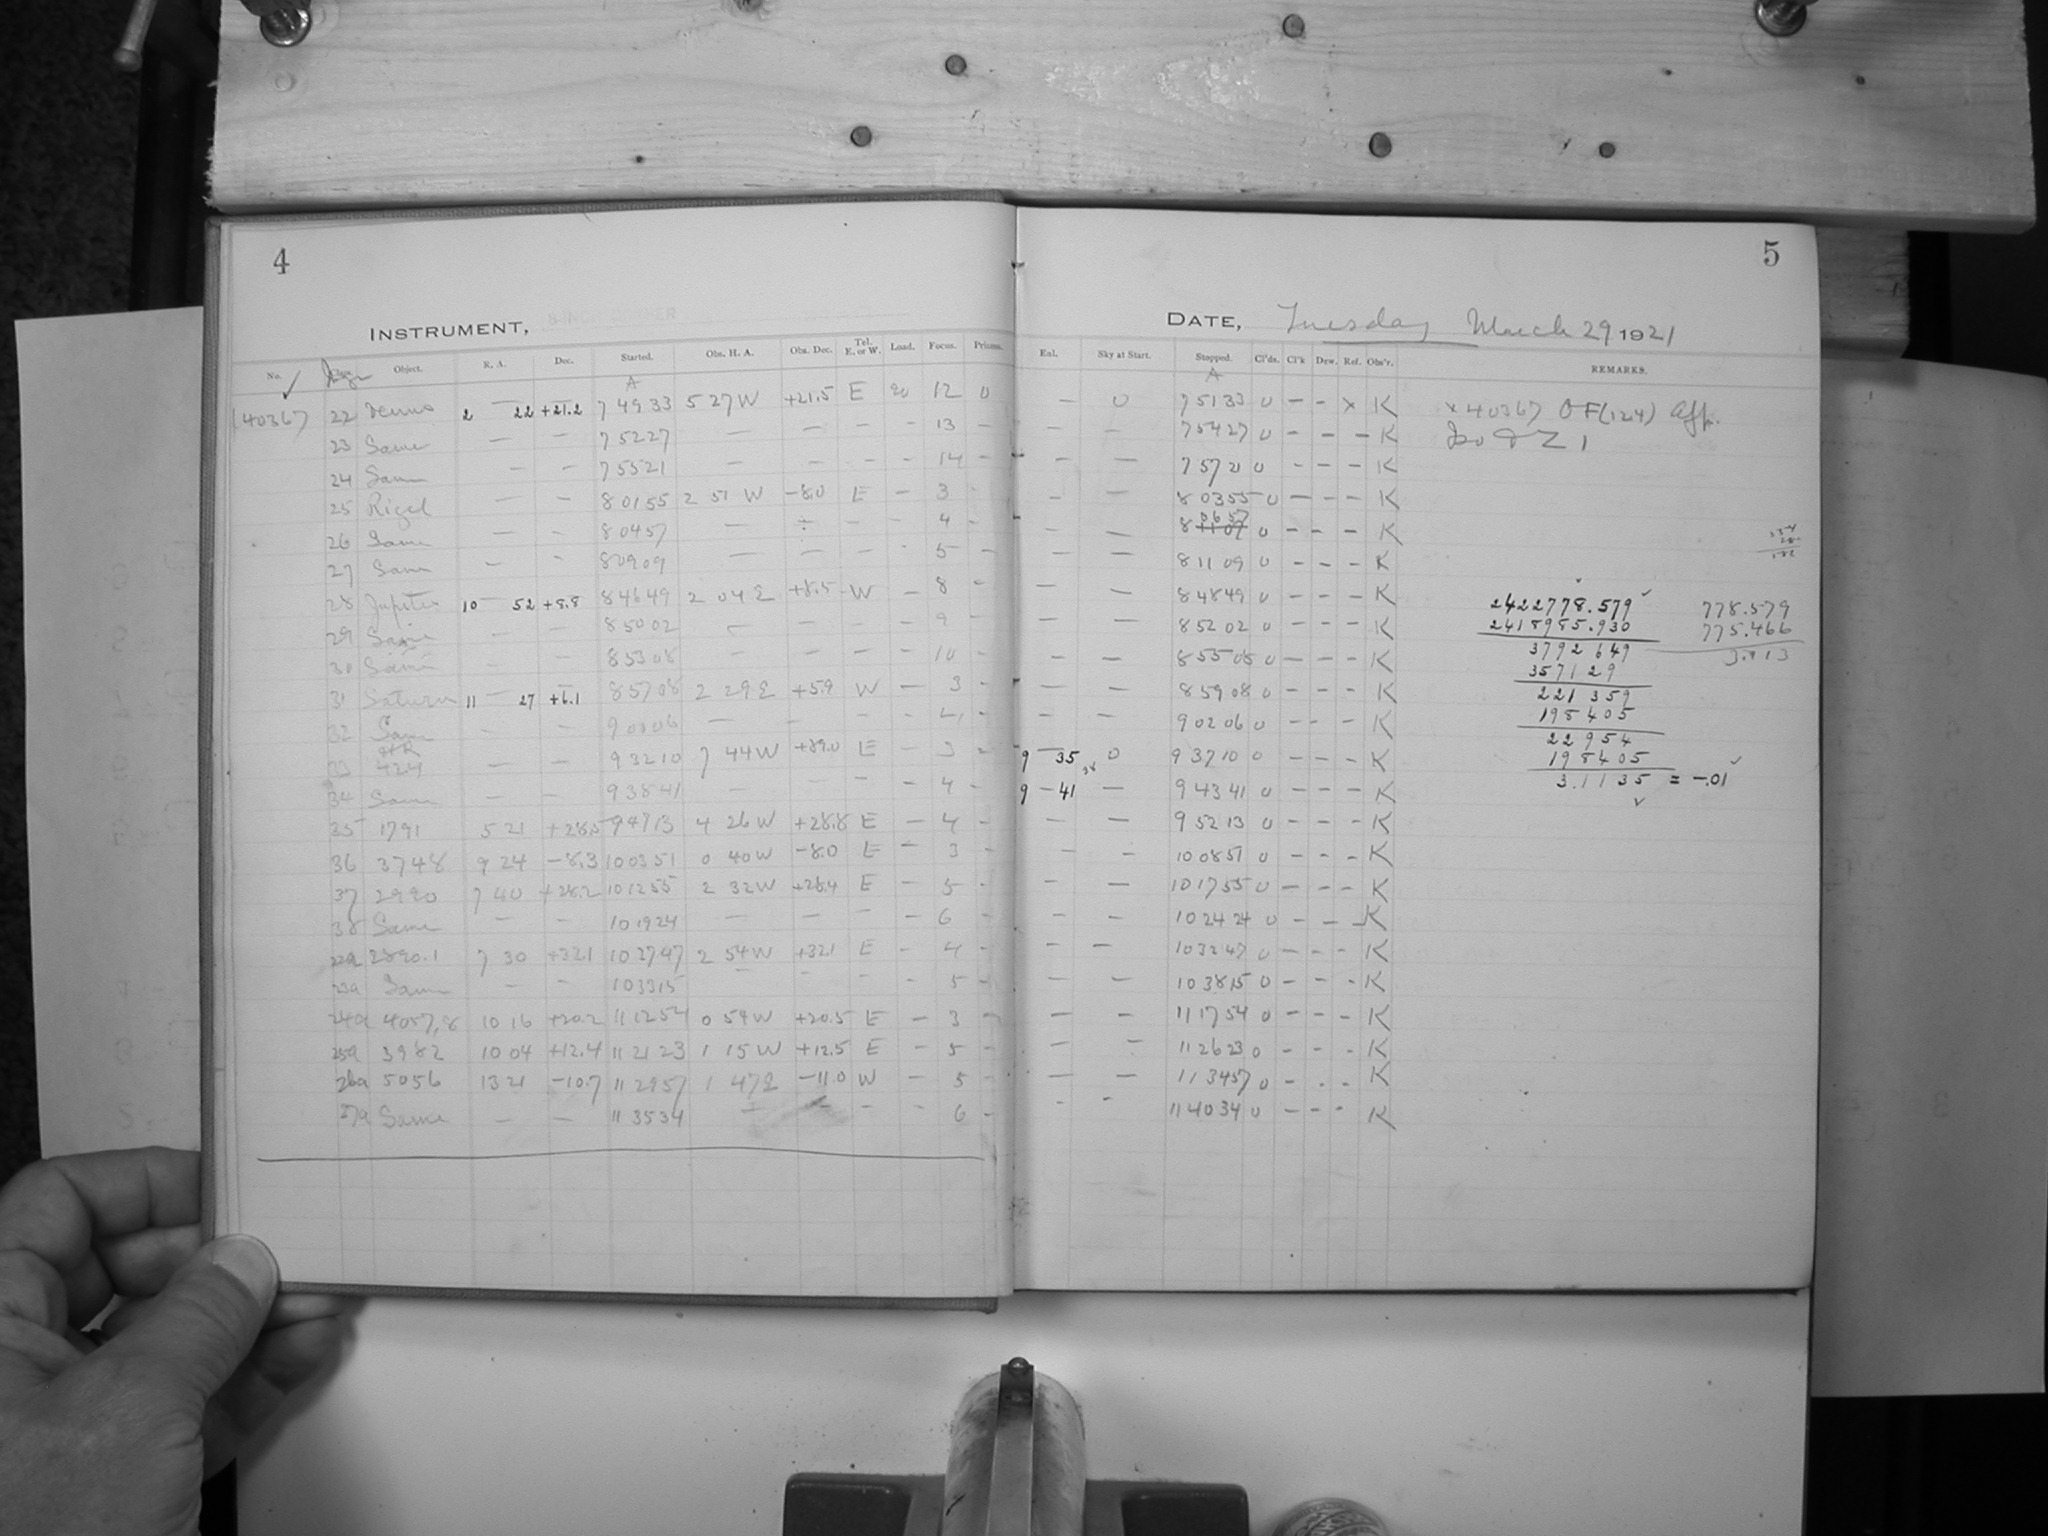 4
INSTRUMENT,
No. Object. R. A. Dec. Started. Obs. H. A. Obs. Dec. Tel. E. or W. Load. Focus. Prisms.
A
140367 22 Venus 2 — 22 +21.2 7 49 33 5 27 W +21.5 E 20 12 0
23 Same — — 7 52 27 — — — — 13
24 Same — — 7 55 21 — — — — 14 —
25 Rigel — — 8 01 55 2 51 W -8.0 E — 3 -
26 Same — — 8 04 57 — — — 4 —
27 Same — — 8 09 09 — — — 5 —
28 Jupiter 10 — 52 +8.8 8 46 49 2 04 E +8.5 W — 8 -
29 Same — — 8 50 02 — — — — 9 -
30 Same — — 8 53 08 — — — — 10 -
31 Saturn 11 — 27 +6.1 8 57 08 2 29 E +5.9 W — 3 -
32 Same — — 9 00 06 — — — —
33 4244 — — 9 32 10 7 44 W E — 3 -
34 Same — — 9 38 41 — — — — 4 -
35 1791 5 21 +28.5 9 47 13 4 26 W +28.8 E — 4 -
36 3748 9 24 -8.3 10 03 51 0 40 W -8.0 E — 3 -
37 2990 7 40 +28.2 10 12 55 2 32 W +28.4 E — 5 -
38 Same — — 10 19 24 — — — — 6 -
22a 2890.1 7 30 +32.1 10 27 47 2 54 W +32.1 E — 4 -
23a Same — — 10 33 15 — — — — 5 -
24a 4057,8 10 16 +20.2 11 12 54 0 54 W +20.5 E — 3 -
25a 3982 10 04 +12.4 11 21 23 1 15 W +12.5 E — 5 -
26a 5056 13 21 -10.7 11 29 57 1 47 E -11.0 W — 5 -
27a Same — — 11 35 34 — — — — 6 -
5
DATE, Tuesday March 29 1921
Enl. Sky at Start. Stopped. Cl'ds. Cl'k Drw. Ref. Obs'r. REMARKS.
A
— 0 7 51 33 0 — — x K x 40367 OF(124)
— — 7 54 27 0 — — — K
— — 7 57 21 0 — — — K
— — 8 03 55 0 — — — K
— — 8 06 57 0 — — — K
— — 8 11 09 0 — — — K
— — 8 48 49 0 — — — K
— — 8 52 02 0 — — — K
— — 8 55 08 0 — — — K
— — 8 59 08 0 — — — K
— — 9 02 06 0 — — — K
9 — 35 0 9 37 10 0 — — — K
9 — 41 — 9 43 41 0 — — — K
— — 9 52 13 0 — — — K
— — 10 08 51 0 — — — K
— — 10 17 55 0 — — — K
— — 10 24 24 0 — — — K
— — 10 32 47 0 — — — K
— — 10 38 15 0 — — — K
— — 11 17 54 0 — — — K
— — 11 26 23 0 — — — K
— — 11 34 57 0 — — — K
— — 11 40 34 0 — — — K
2422778.579 778.579
2418985.930 775.466
3792 649 3.113
3571 29
221 359
198405
22954
198405
3.1135 = -.01